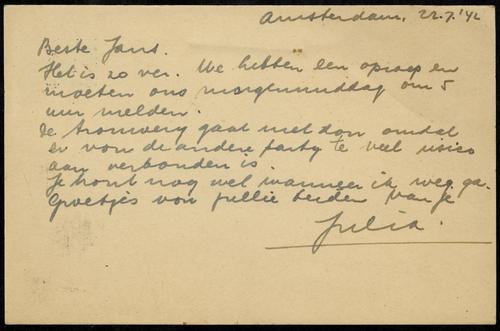 Amsterdam, 22.7.'42
Beste Jans.
Het is zo ver. We hebben een oproep en
moeten ons morgenmiddag om 5
uur melden.
De trouwerij gaat niet door omdat
er van de andere party te veel risico
aan verbonden is.
Je hoort nog wel wanneer ik weg ga.
Groetjes van jullie beiden van je
Julia.